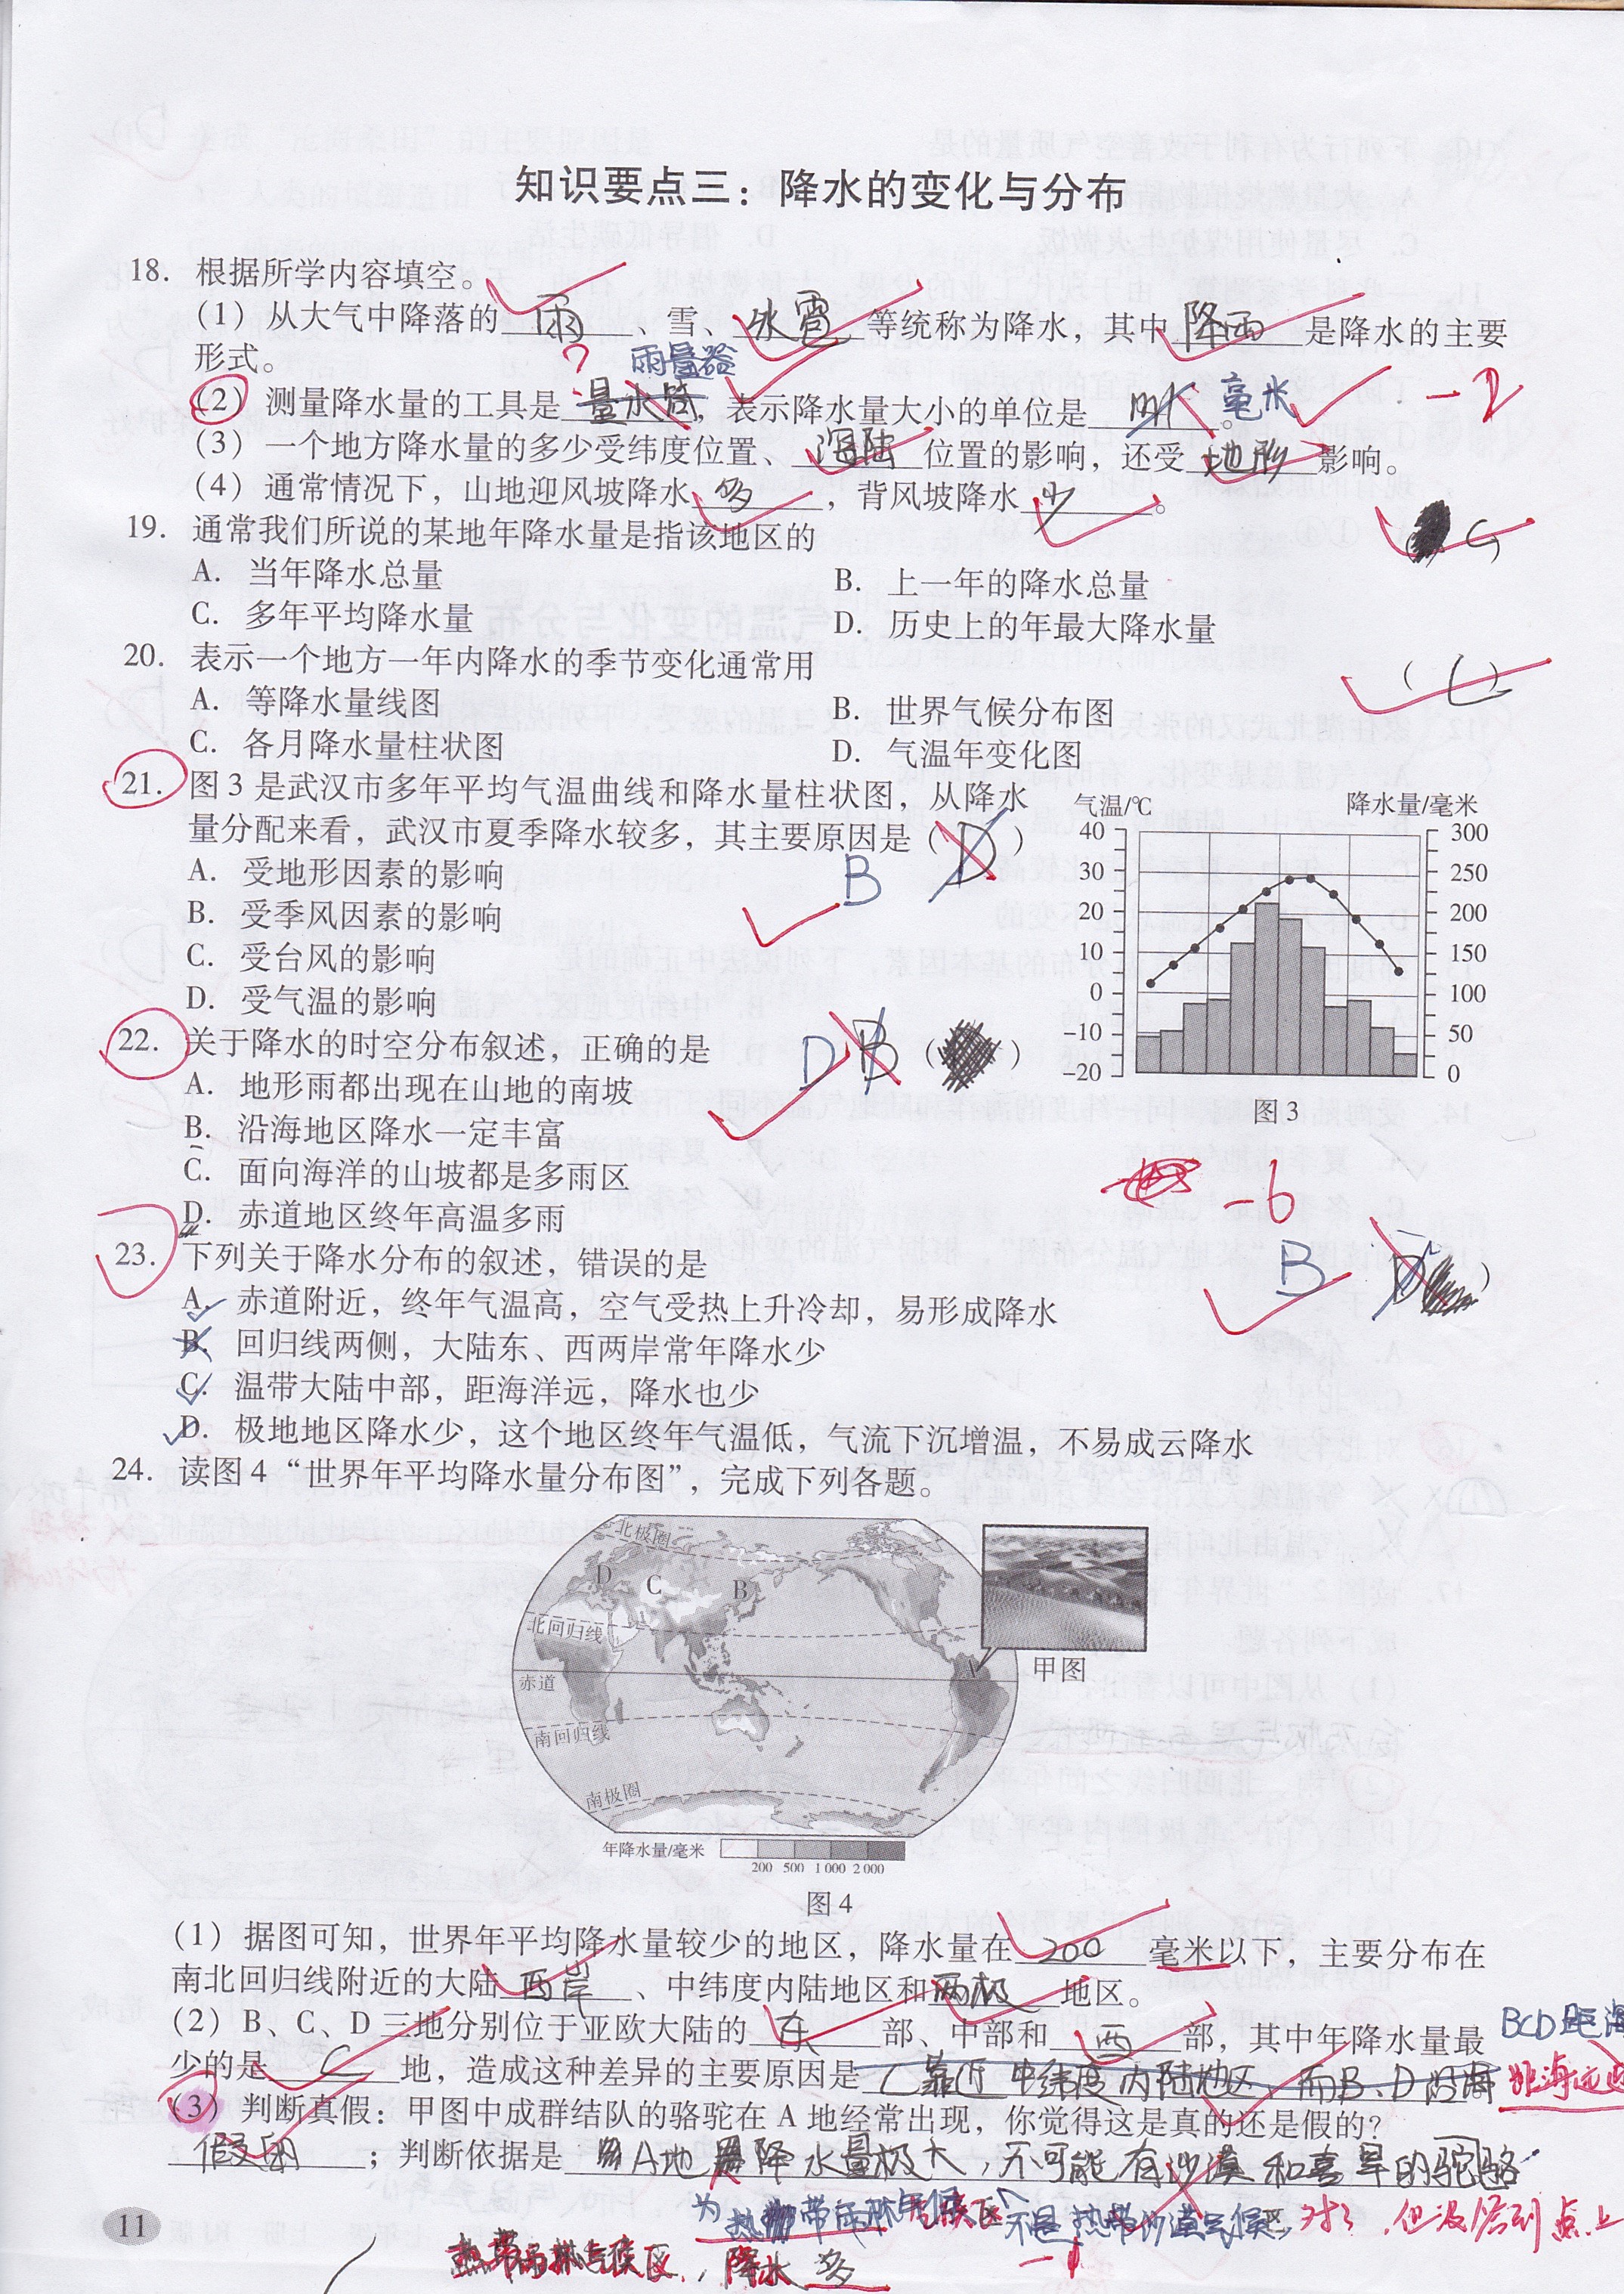 知识要点三：降水的变化与分布
18. 根据所学内容填空。
(1) 从大气中降落的 雨 、雪、 冰雹 等统称为降水，其中 降雨 是降水的主要
形式。
? 雨量器
(2) 测量降水量的工具是 量水筒 ，表示降水量大小的单位是 mm 。 毫米 -2
(3) 一个地方降水量的多少受纬度位置、 海陆 位置的影响，还受 地形 影响。
(4) 通常情况下，山地迎风坡降水 多 ，背风坡降水 少 。
19. 通常我们所说的某地年降水量是指该地区的 C
A. 当年降水总量 B. 上一年的降水总量
C. 多年平均降水量 D. 历史上的年最大降水量
20. 表示一个地方一年内降水的季节变化通常用 ( C )
A. 等降水量线图 B. 世界气候分布图
C. 各月降水量柱状图 D. 气温年变化图
21. 图 3 是武汉市多年平均气温曲线和降水量柱状图，从降水
量分配来看，武汉市夏季降水较多，其主要原因是 ( D )
B
A. 受地形因素的影响
B. 受季风因素的影响
C. 受台风的影响
D. 受气温的影响
气温/℃ 降水量/毫米
40 300
30 250
20 200
10 150
0 100
-10 50
-20 0
图 3
22. 关于降水的时空分布叙述，正确的是 D B ( )
A. 地形雨都出现在山地的南坡
B. 沿海地区降水一定丰富
C. 面向海洋的山坡都是多雨区
D. 赤道地区终年高温多雨
-6
23. 下列关于降水分布的叙述，错误的是 B D )
A. 赤道附近，终年气温高，空气受热上升冷却，易形成降水
B. 回归线两侧，大陆东、西两岸常年降水少
C. 温带大陆中部，距海洋远，降水也少
D. 极地地区降水少，这个地区终年气温低，气流下沉增温，不易成云降水
24. 读图 4 “世界年平均降水量分布图”，完成下列各题。
北极圈
D C B
北回归线
赤道 A
甲图
南回归线
南极圈
年降水量/毫米
200 500 1 000 2 000
图 4
(1) 据图可知，世界年平均降水量较少的地区，降水量在 200 毫米以下，主要分布在
南北回归线附近的大陆 西岸 、中纬度内陆地区和 两极 地区。
(2) B、C、D 三地分别位于亚欧大陆的 东 部、中部和 西 部，其中年降水量最 BCD距海
少的是 C 地，造成这种差异的主要原因是 C靠近中纬度内陆地区，而B、D沿海 距海远近
(3) 判断真假：甲图中成群结队的骆驼在 A 地经常出现，你觉得这是真的还是假的？
假的 ；判断依据是 A地 降水量极大，不可能有沙漠和喜旱的骆驼
为热带雨林气候区，不是热带沙漠气候区， 对了，但没答到点上
热带雨林气候区，降水多 -1
11